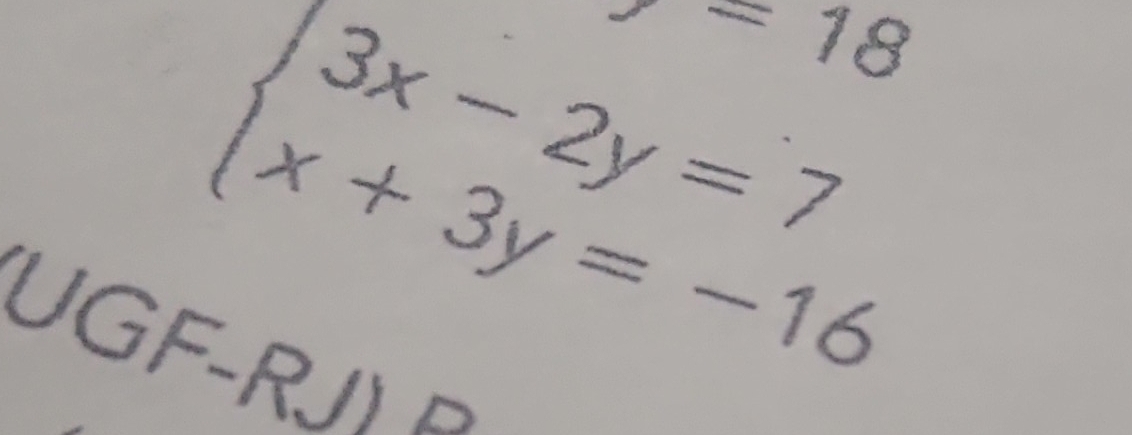 = 18
3x - 2y = 7
x + 3y = -16
(UGF-RJ)